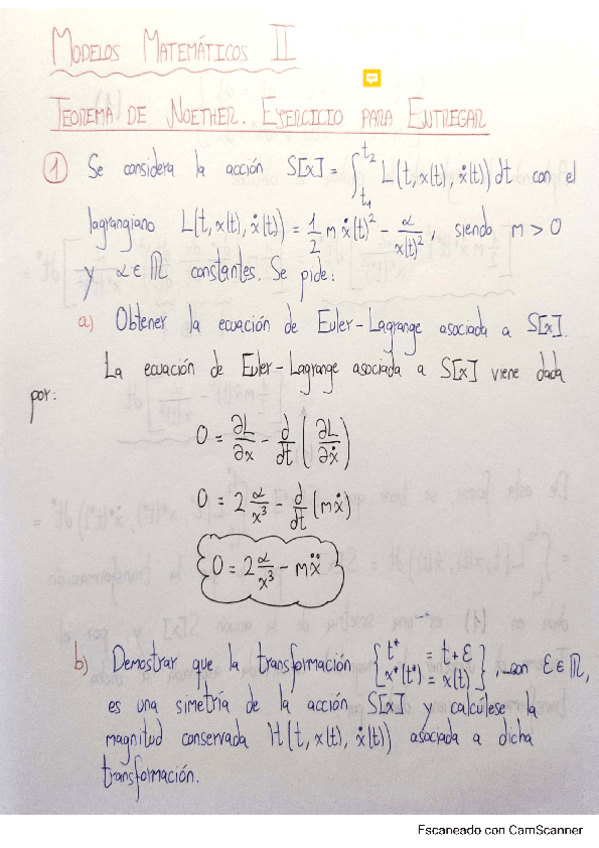 MODELOS MATEMÁTICOS II
TEOREMA DE NOETHER. EJERCICIO PARA ENTREGAR
① Se considera la acción S[x] = ∫_{t₁}^{t₂} L(t, x(t), ẋ(t)) dt con el
lagrangiano L(t, x(t), ẋ(t)) = 1/2 m ẋ(t)² - α/x(t)², siendo m > 0
y α ∈ ℝ constantes. Se pide:
a) Obtener la ecuación de Euler-Lagrange asociada a S[x].
La ecuación de Euler-Lagrange asociada a S[x] viene dada
por:
0 = ∂L/∂x - d/dt (∂L/∂ẋ)
0 = 2 α/x³ - d/dt (mẋ)
0 = 2 α/x³ - mẍ
b) Demostrar que la transformación { t* = t + ε
x*(t*) = x(t) }, con ε ∈ ℝ,
es una simetría de la acción S[x] y calcúlese la
magnitud conservada H(t, x(t), ẋ(t)) asociada a dicha
transformación.
Escaneado con CamScanner